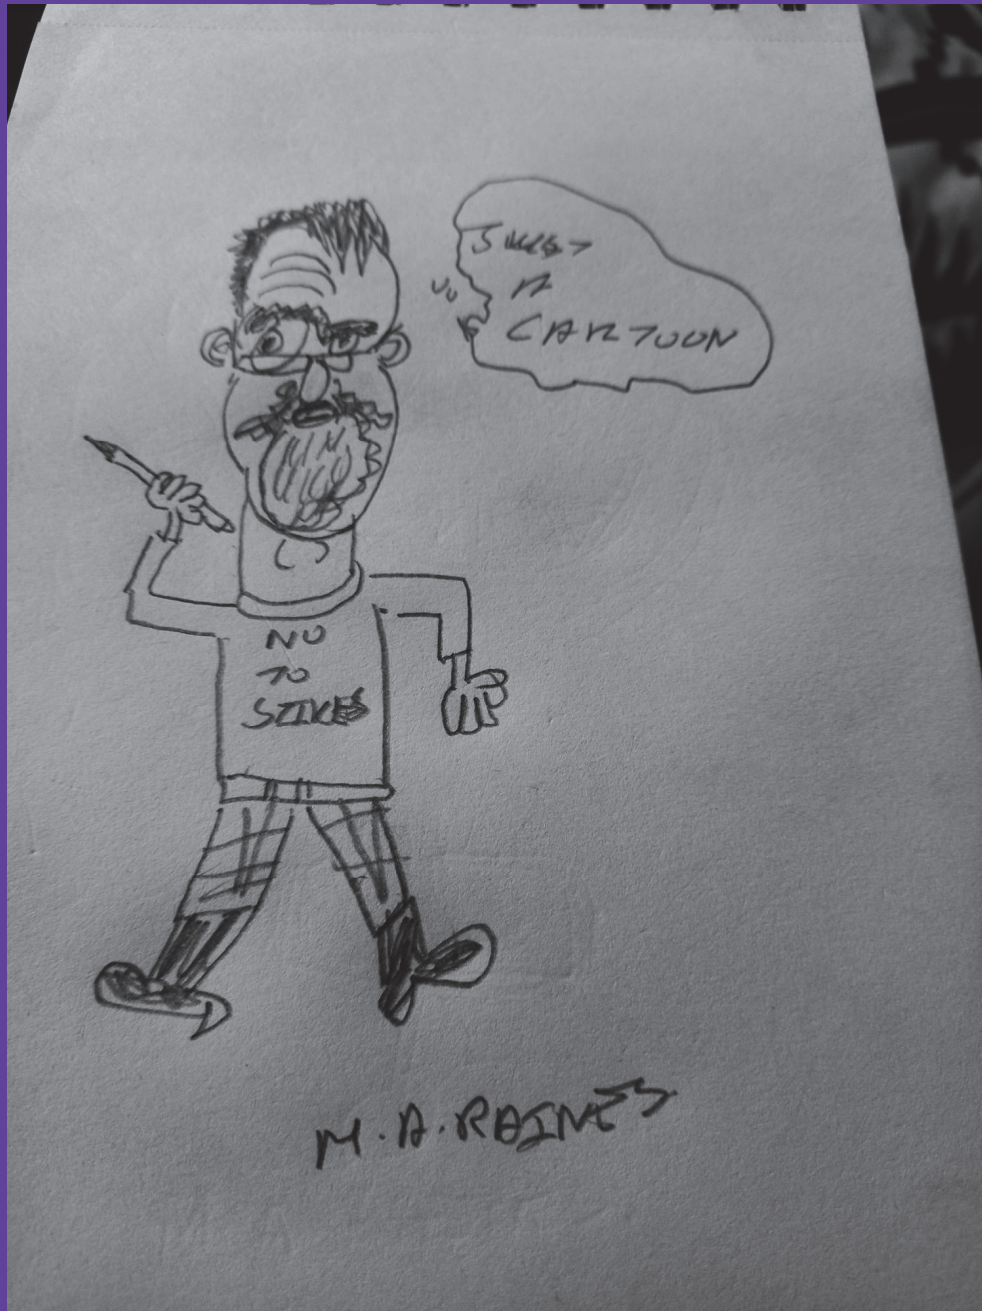 A
CARTOON
NO
TO
STIKES
M.A.RAINES